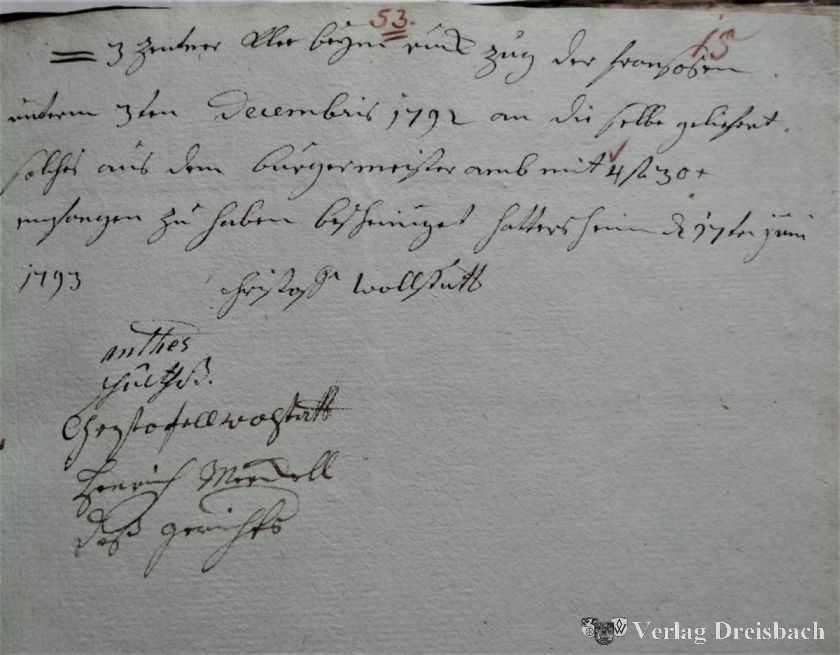 53.
15
= 3 Zentner Klee beÿm rück zug der franzosen
unterm 3ten Decembris 1792 an die selbe geliefert.
solches aus dem bürgermeister ambt mit 4 fl 30 x
empfangen zu haben bescheiniget hattersheim d 17ten juni
1793 christoff wollstatt
anthes
schultheß.
Christofell wohlstatt
Henrich Mendell
daß gerichts
Verlag Dreisbach